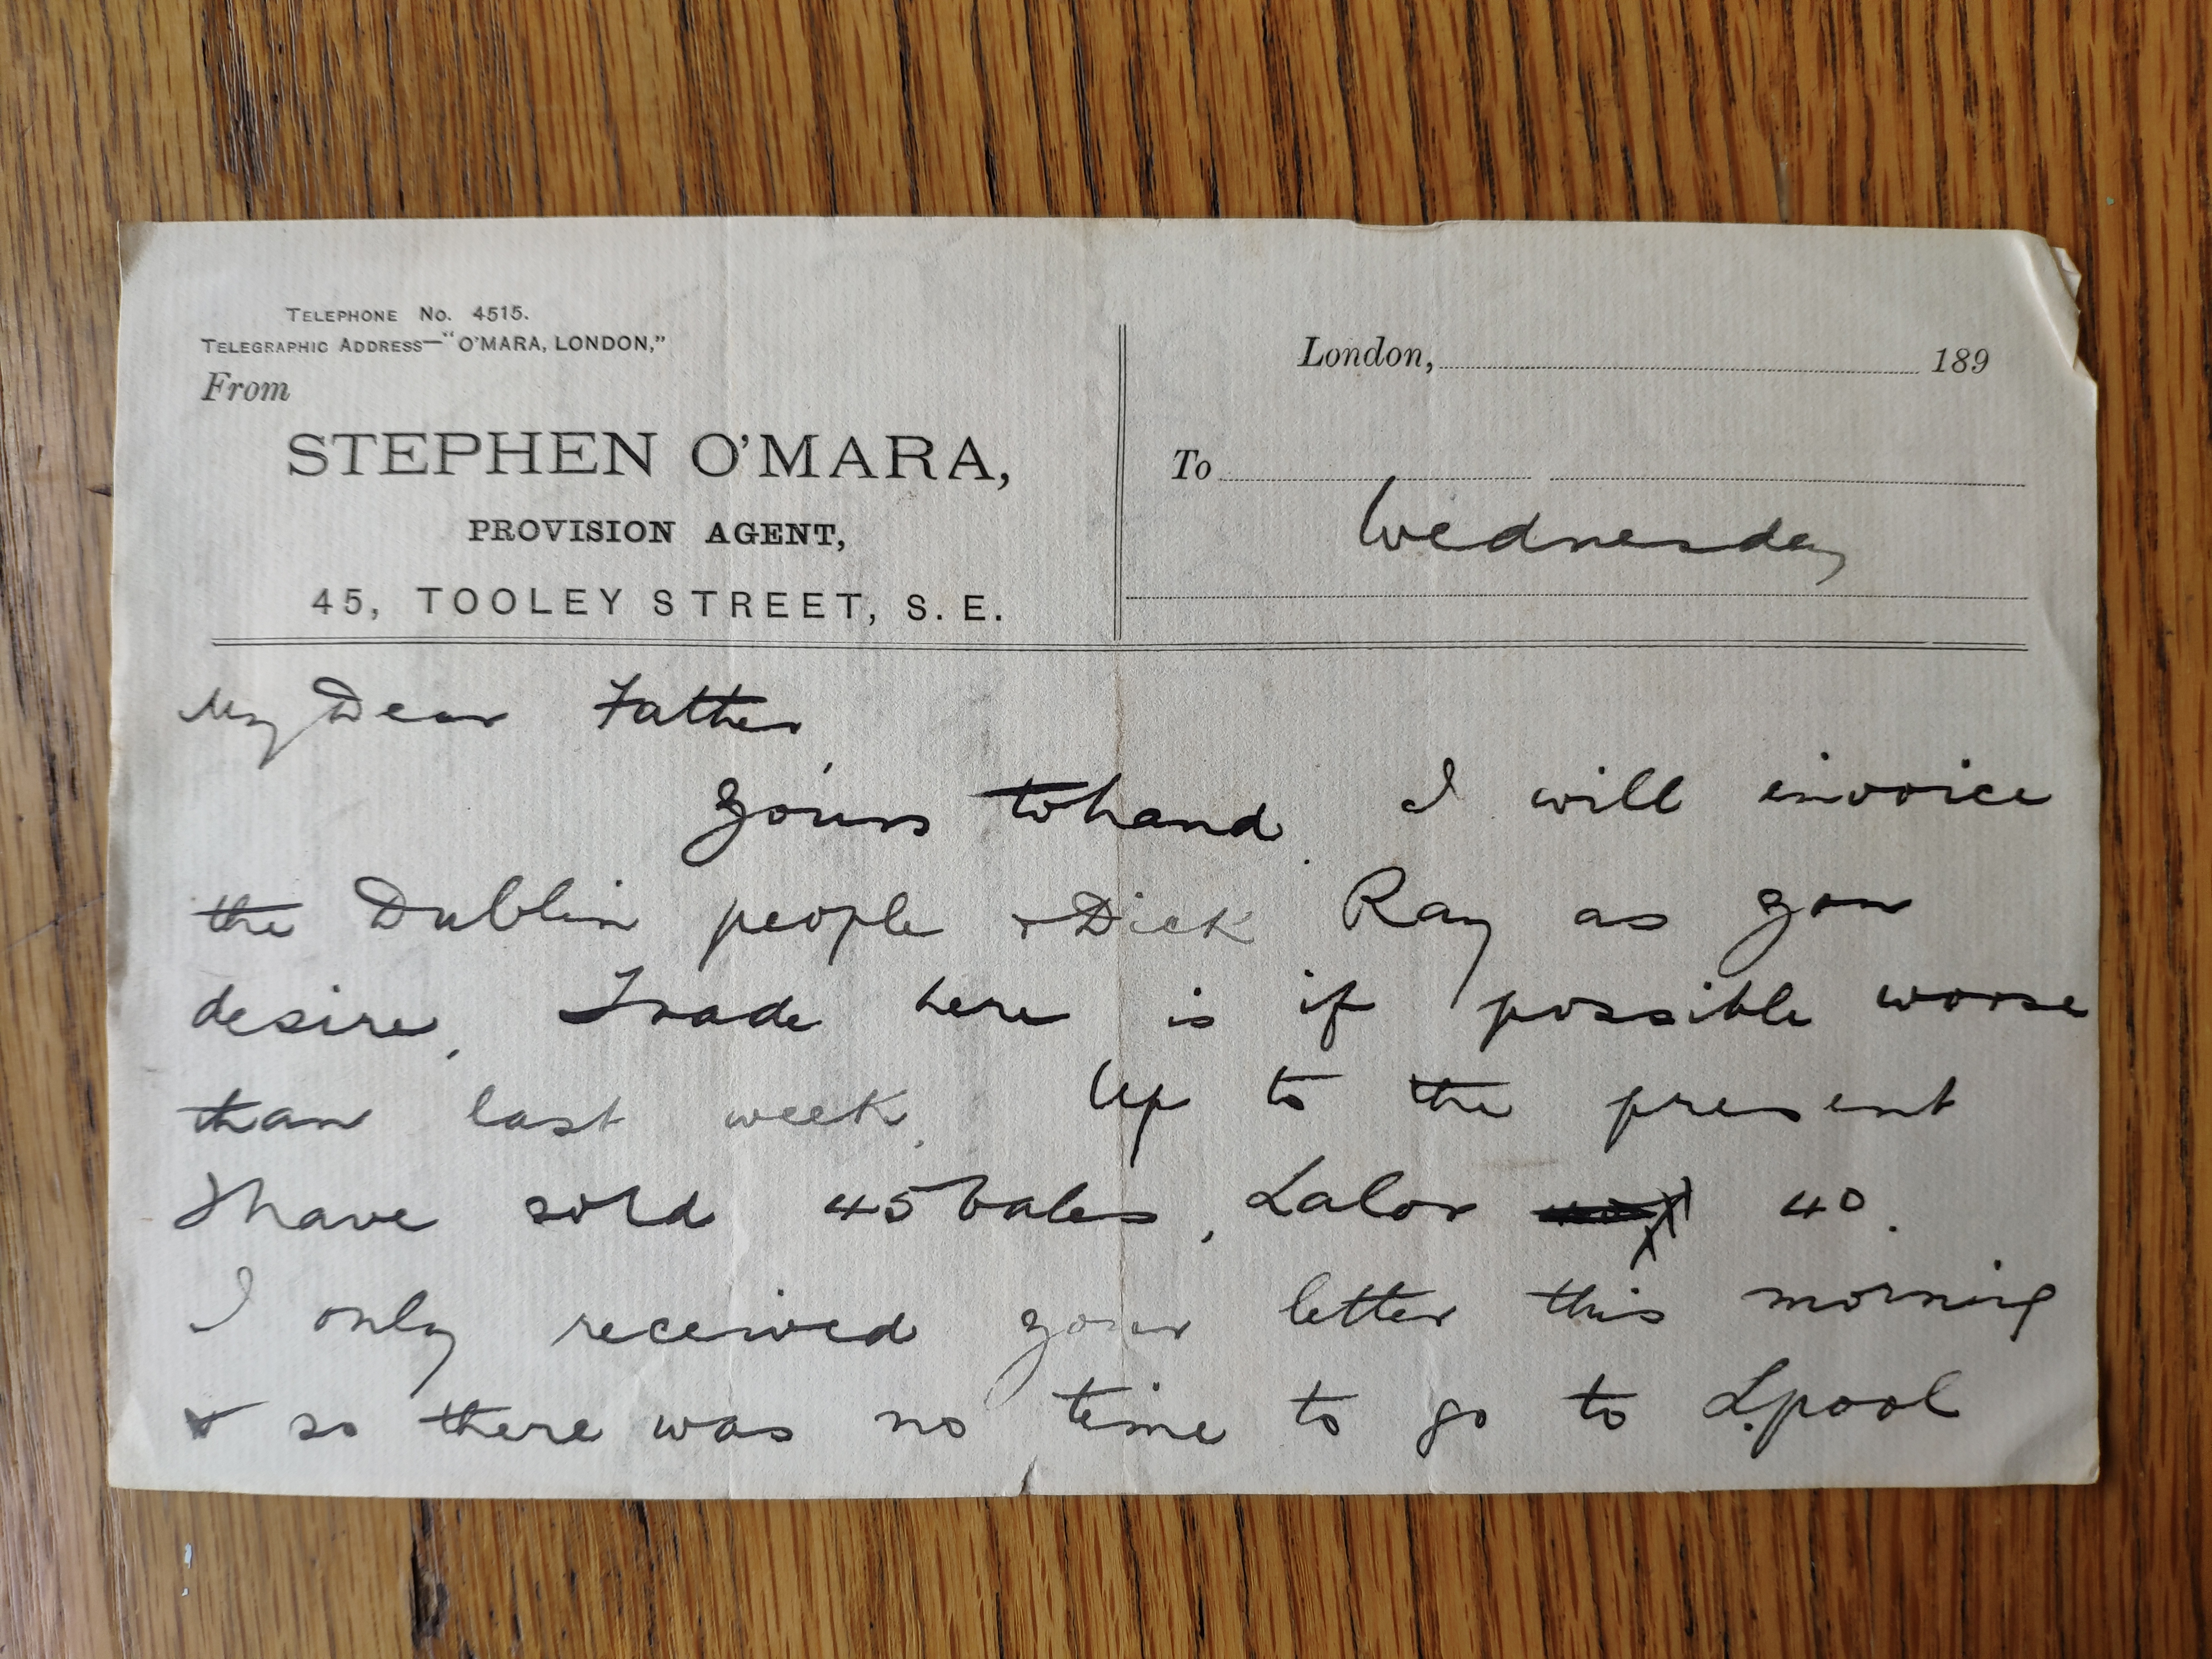 TELEPHONE No. 4515.
TELEGRAPHIC ADDRESS—"O'MARA, LONDON,"
From
STEPHEN O'MARA,
PROVISION AGENT,
45, TOOLEY STREET, S. E.
London, 189
To
Wednesday
My Dear Father
Yours to hand. I will invoice
the Dublin people & Dick Ray as you
desire. Trade here is if possible worse
than last week. Up to the present
I have sold 45 bales, Lalor 40.
I only received your letter this morning
& so there was no time to go to L.pool